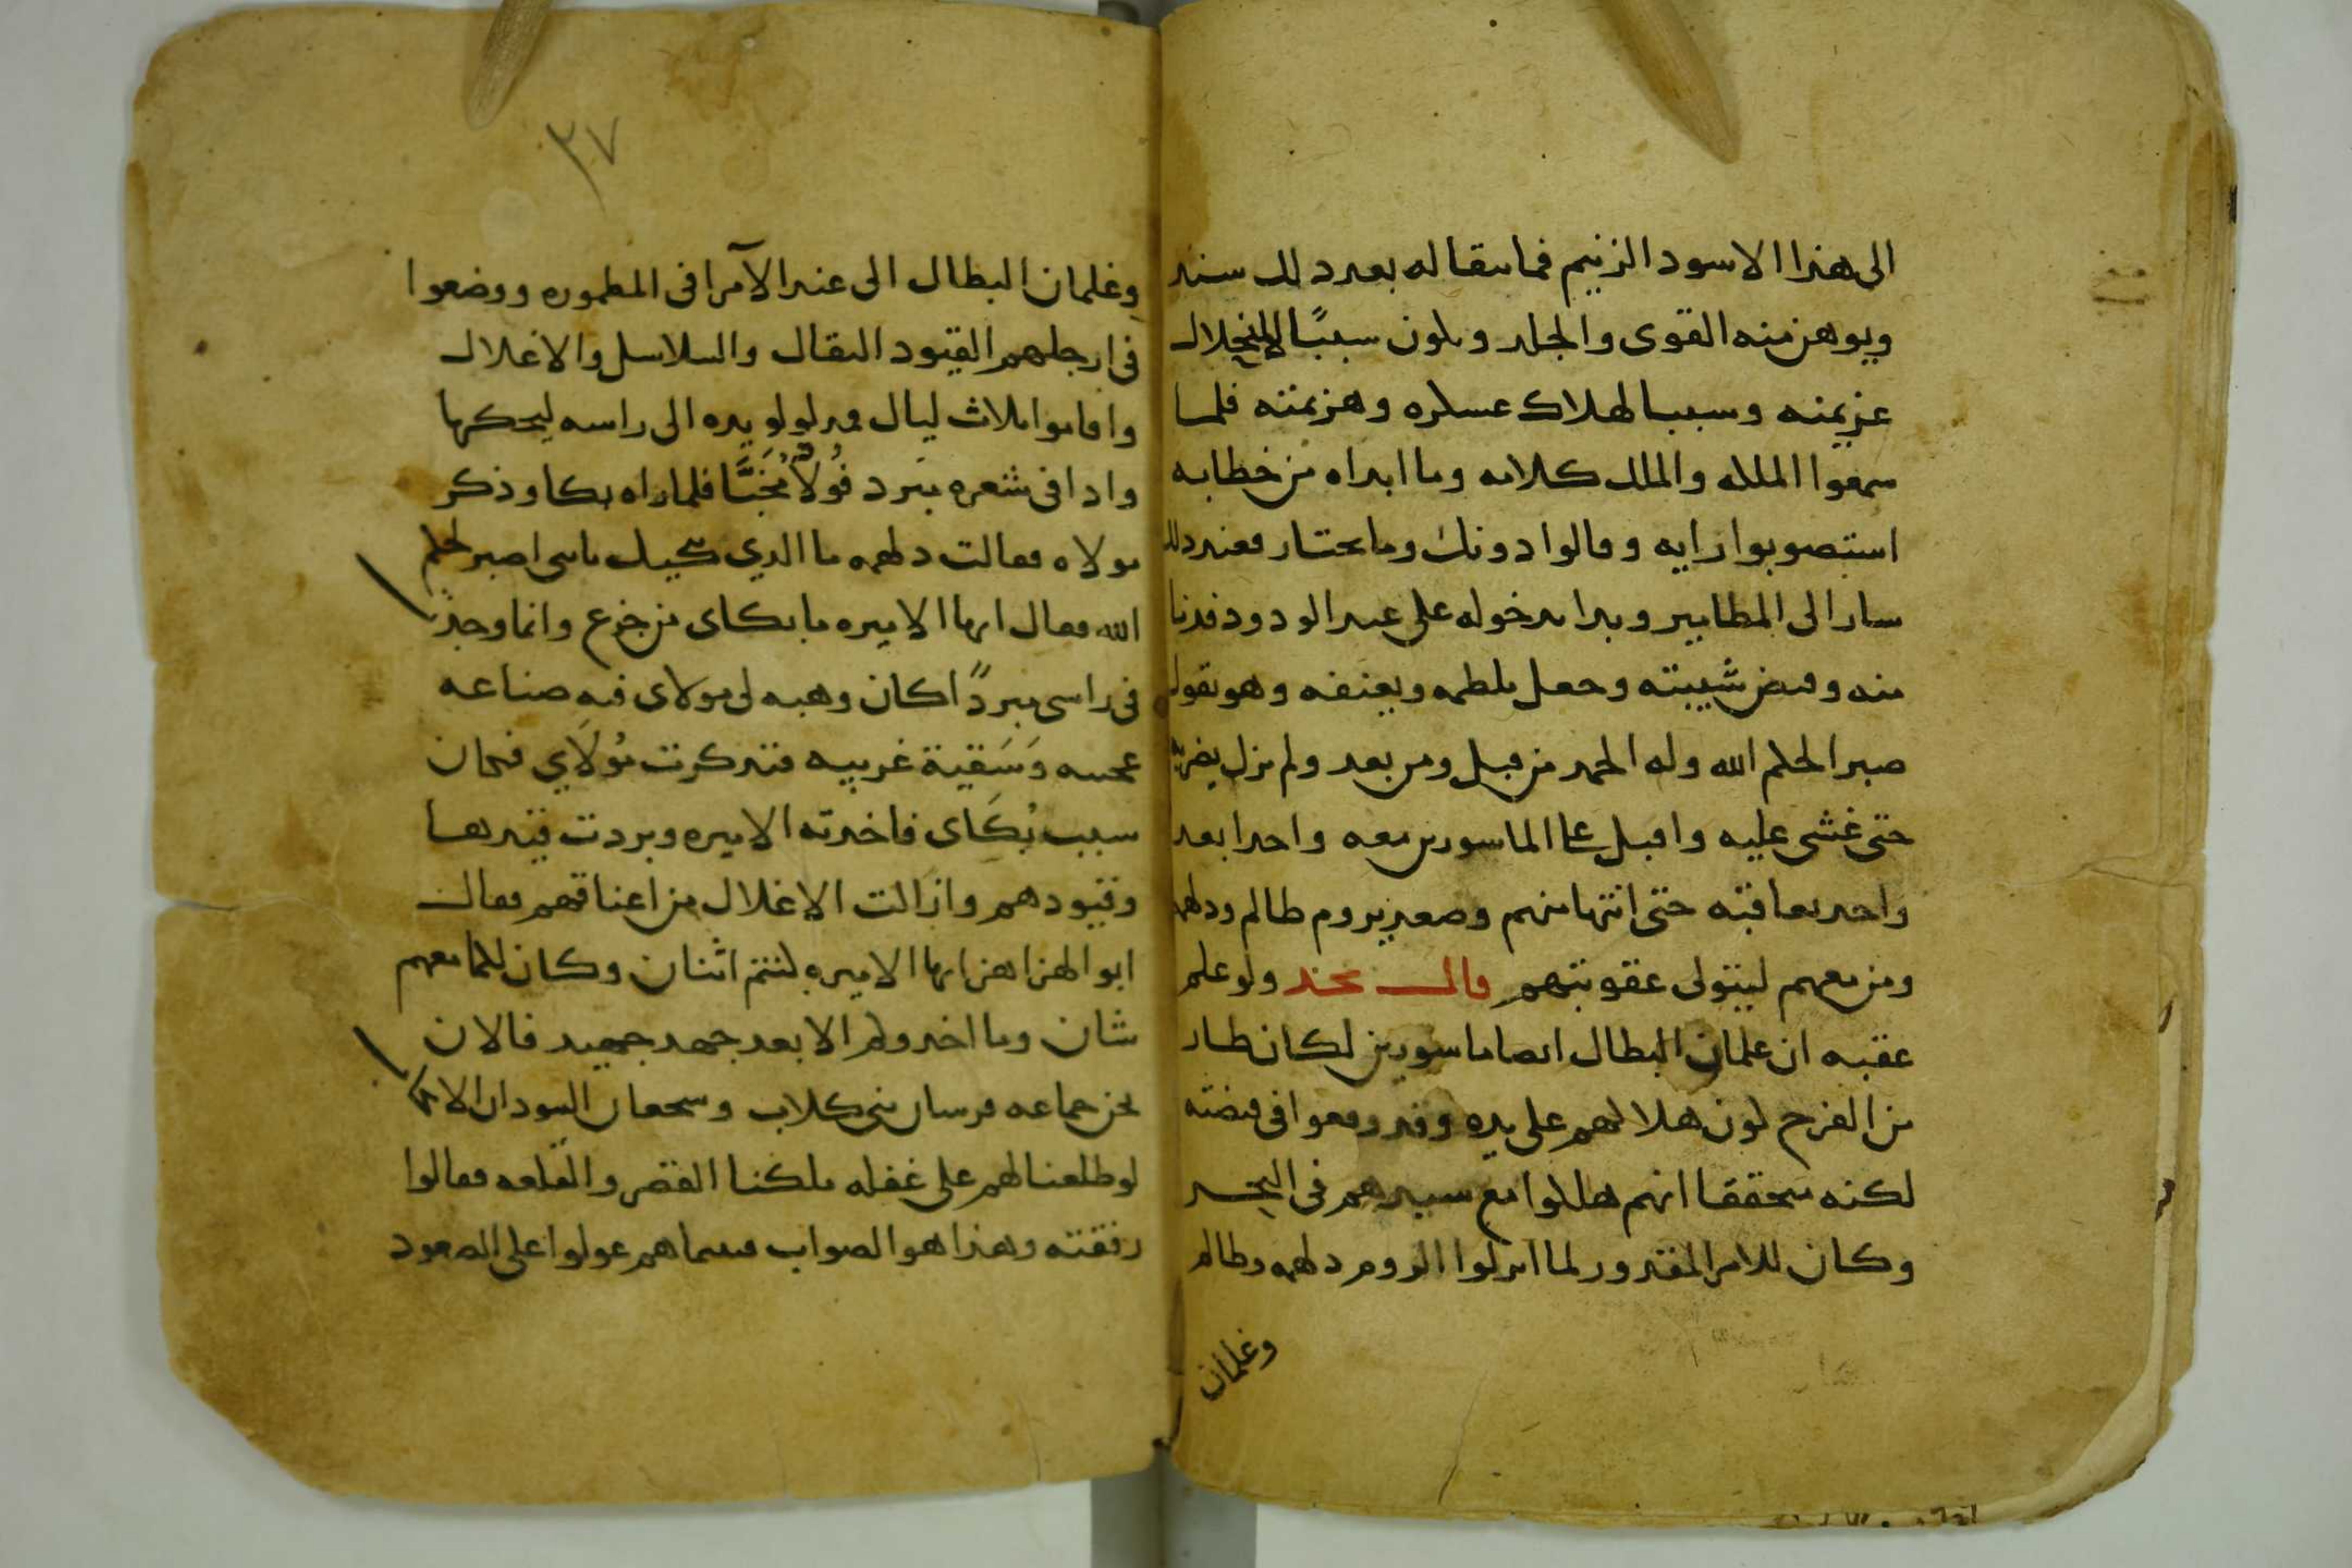 الى هذا الاسود الزنيم فما بقا له بعد ذلك سند
ويوهن منه القوى والجلد ويكون سببًا لانحلال
عزيمته وسببا لهلاك عسكره وهزيمته فلما
سمعوا الملكه والملك كلامه وما ابداه من خطابه
استصوبوا رايه وقالوا دونك وما تختار فعند ذلك
سار الى المطامير وبدا بدخوله على عبد الودود فدنا
منه وقبض شيبته وجعل يلطمه ويعنفه وهو يقول
صبر الحكم الله وله الحمد من قبل ومن بعد ولم يزل يضربه
حتى غشى عليه واقبل على الماسورين معه واحدا بعد
واحد يعاقبه حتى انتها منهم وصعد يروم ظالم ودلهمه
ومن معهم ليتولى عقوبتهم قال نجد ولو علم
عقبه ان غلمان البطال ايضا ماسورين لكان طار
من الفرح لون هلاكهم على يده وقد وقعوا في قبضته
لكنه متحققا انهم هلكوا مع سيدهم في البحر
وكان للامر المقدور لما انزلوا الروم دلهمه وظالم
وغلمان
٣٧
وغلمان البطال الى عند الآمرا في المطموره ووضعوا
في ارجلهم القيود الثقال والسلاسل والاغلال
واقاموا ثلاث ليال فمد لولو يده الى راسه ليحكها
واذا في شعره مبرد فُولاذ مُخبّا فلما راه بكا وذكر
مولاه فقالت دلهمه ما الذي يبكيك يا بنى اصبر لحكم
الله فقال ايها الاميره ما بكاى من جزع وانما وجدت
في راسى مبردًا كان وهبه لى مولاى فيه صناعه
عجيبه وَسَقية غريبه فتذكرت مُولَاي فكان
سبب بُكَاى فاخذته الاميره وبردت قيدها
وقيودهم وازالت الاغلال من اعناقهم فقال
ابو الهزاهز ايها الاميره كنتم اثنان وكان لكما معهم
شان وما اخذوكم الا بعد جهد جهيد فالان
نحن جماعه فرسان بنى كلاب وشجعان السودان الانجاب
لو طلعنا لهم على غفله ملكنا القصر والقلعه فقالوا
رفقته وهذا هو الصواب فبينما هم عولوا على الصعود